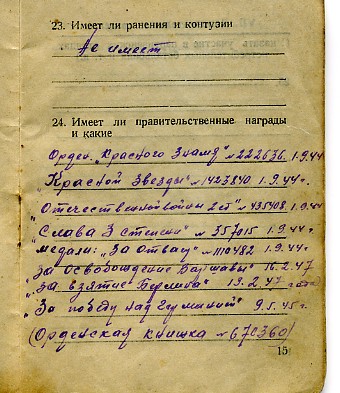 23. Имеет ли ранения и контузии
Не имеет
24. Имеет ли правительственные награды
и какие
Орден „Красного Знамя" №222636. 1.9.44
„Красной Звезды" №1423840 1.9.44г.
„Отечественной войны 2ст" №435408. 1.9.44
„Слава 3 степени" № 357015 1.9.44г
медали: „За Отвагу" №1110482 1.9.44г.
„За Освобождение Варшавы" 16.2.47
„За взятие Берлина" 13.2.47 года
„За победу над Германией" 9.5.45г.
(Орденская книжка №670360)
15